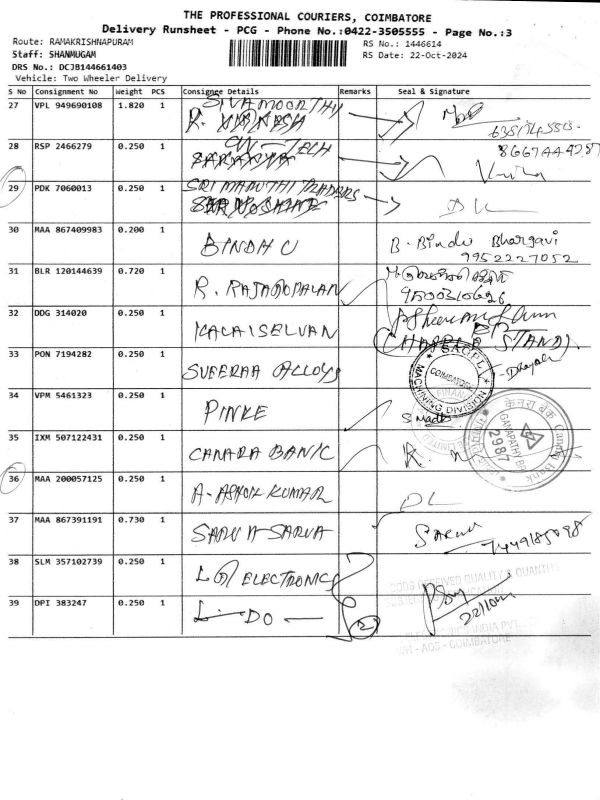 THE PROFESSIONAL COURIERS, COIMBATORE
Delivery Runsheet - PCG - Phone No.:0422-3505555 - Page No.:3
Route: RAMAKRISHNAPURAM
RS No.: 1446614
Staff: SHANMUGAM
RS Date: 22-Oct-2024
DRS No.: DCJB144661403
Vehicle: Two Wheeler Delivery
S No Consignment No Weight PCS Consignee Details Remarks Seal & Signature
27 VPL 949690108 1.820 1 SIVAMOORTHY
28 RSP 2466279 0.250 1 TECH
8667444257
29 PDK 7060013 0.250 1 SRI MARUTHI TRADERS DL
30 MAA 867409983 0.200 1 BINDHU B. Bindu Bhargavi
9952227052
31 BLR 120144639 0.720 1 R. RAJAGOPALAN
9500310626
32 DDG 314020 0.250 1 KALAISELVAN
(CHAPPEL STAND).
33 PON 7194282 0.250 1 SUEERAA ALLOYS
COIMBATORE
MACHINING DIVISION
34 VPM 5461323 0.250 1 PINKE S. Madhu
35 IXM 507122431 0.250 1 CANARA BANK
केनरा बैंक Canara Bank
GANAPATHY BR
2987
36 MAA 200057125 0.250 1 A. ASHOK KUMAR DL
37 MAA 867391191 0.730 1 SARVA SARVA
38 SLM 357102739 0.250 1 LG ELECTRONICS
GOODS RECEIVED QUALITY & QUANTITY
39 DPI 383247 0.250 1 L—DO— 2
INDIA PVT
AOS - COIMBATORE